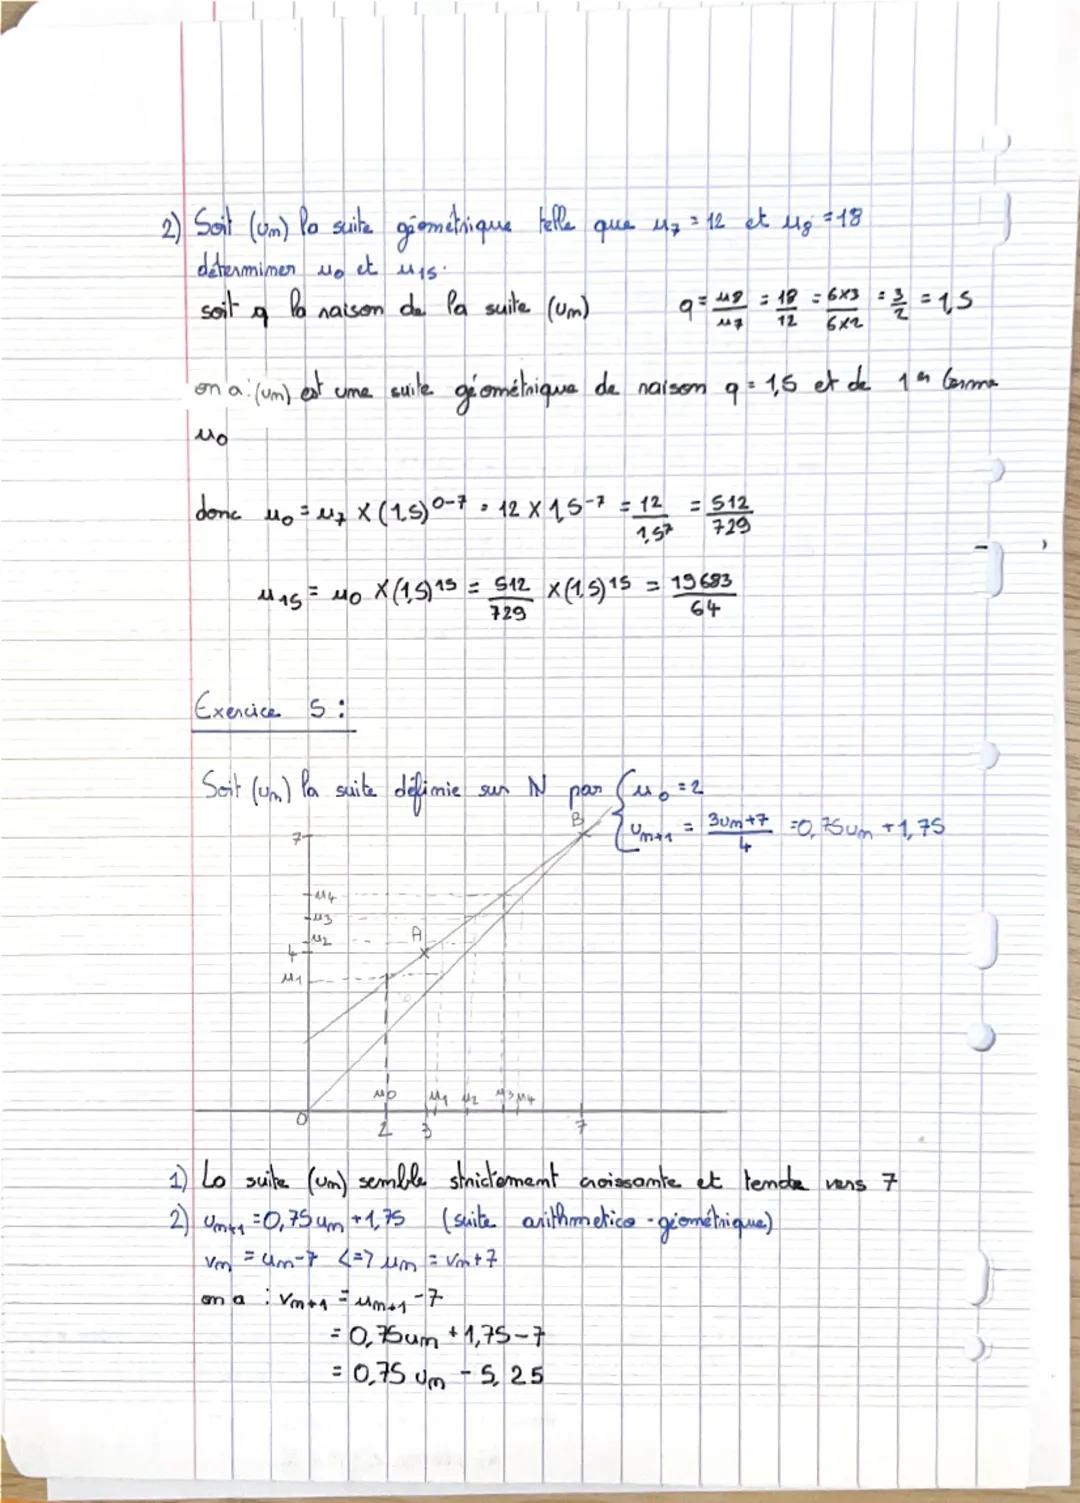 2) Soit (un) la suite géométrique telle que u7 = 12 et u8 = 18
déterminer u0 et u15.
soit q la raison de la suite (un) q = u8/u7 = 18/12 = 6×3/6×2 = 3/2 = 1,5
on a : (un) est une suite géométrique de raison q = 1,5 et de 1er terme
u0
donc u0 = u7 × (1,5)^0-7 = 12 × 1,5^-7 = 12/1,5^7 = 512/729
u15 = u0 × (1,5)^15 = 512/729 × (1,5)^15 = 19683/64
Exercice 5 :
Soit (un) la suite définie sur N par { u0 = 2
un+1 = 3un+7/4 = 0,75un + 1,75
B
7
u4
u3
u2
A
4
u1
u0 u1 u2 u3 u4
0 2 3 7
1) La suite (un) semble strictement croissante et tende vers 7
2) un+1 = 0,75un + 1,75 (suite arithmetico-géométrique)
vn = un-7 <=> un = vn+7
on a : vn+1 = un+1 - 7
= 0,75un + 1,75 - 7
= 0,75 un - 5,25